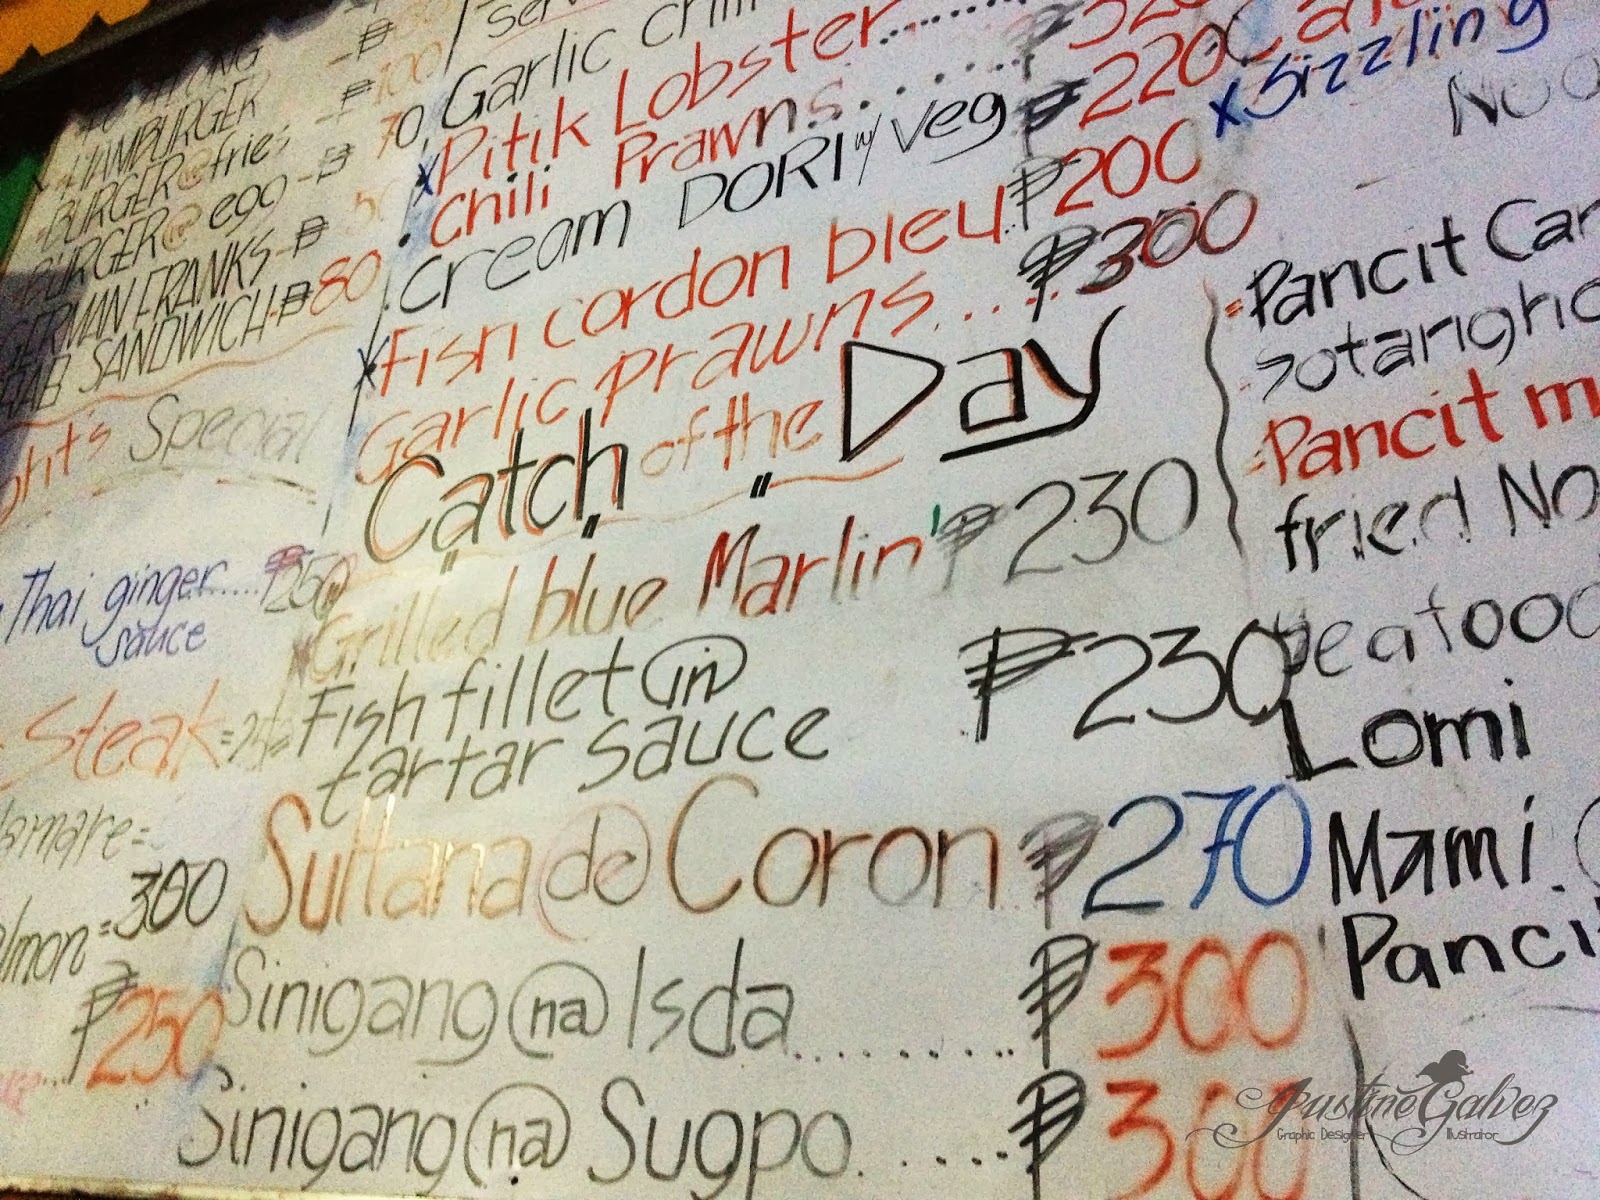 HAMBURGER
BURGER @ fries
BURGER in egg
GERMAN FRANKS - ₱
SANDWICH - ₱80
Special
Thai ginger....₱250
sauce
Steak
300
₱250
Garlic chili
x Pitik Lobster
• Chili Prawns ₱220
• Cream DORI w/ veg
x Fish cordon bleu ₱200
Garlic prawns... ₱300
Catch of the Day
Grilled blue Marlin ₱230
Fish fillet in ₱230
tartar sauce
Sultana de Coron ₱270
Sinigang na Isda ₱300
Sinigang na Sugpo ₱300
x Sizzling
Pancit
sotangho
Pancit
fried
seafood
Lomi
Mami
Justine Galvez
Graphic Designer Illustrator